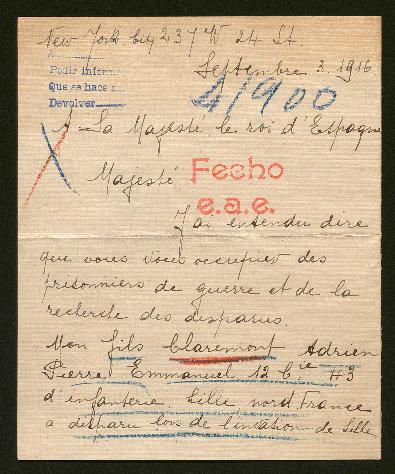 New York City 237 W 24 St.
Septembre 3. 1916
Pedir inform
Que se hace
Devolver
41900
A Sa Majesté le roi d'Espagne
Fecho
e.a.e.
Majesté
J'ai entendu dire
que vous vous occupier des
prisonniers de guerre et de la
recherche des disparus.
Mon fils Claremont Adrien
Pierre Emmanuel 12 Cie #3
d'infanterie Lille nord France
a disparu lors de l'invation de Lille